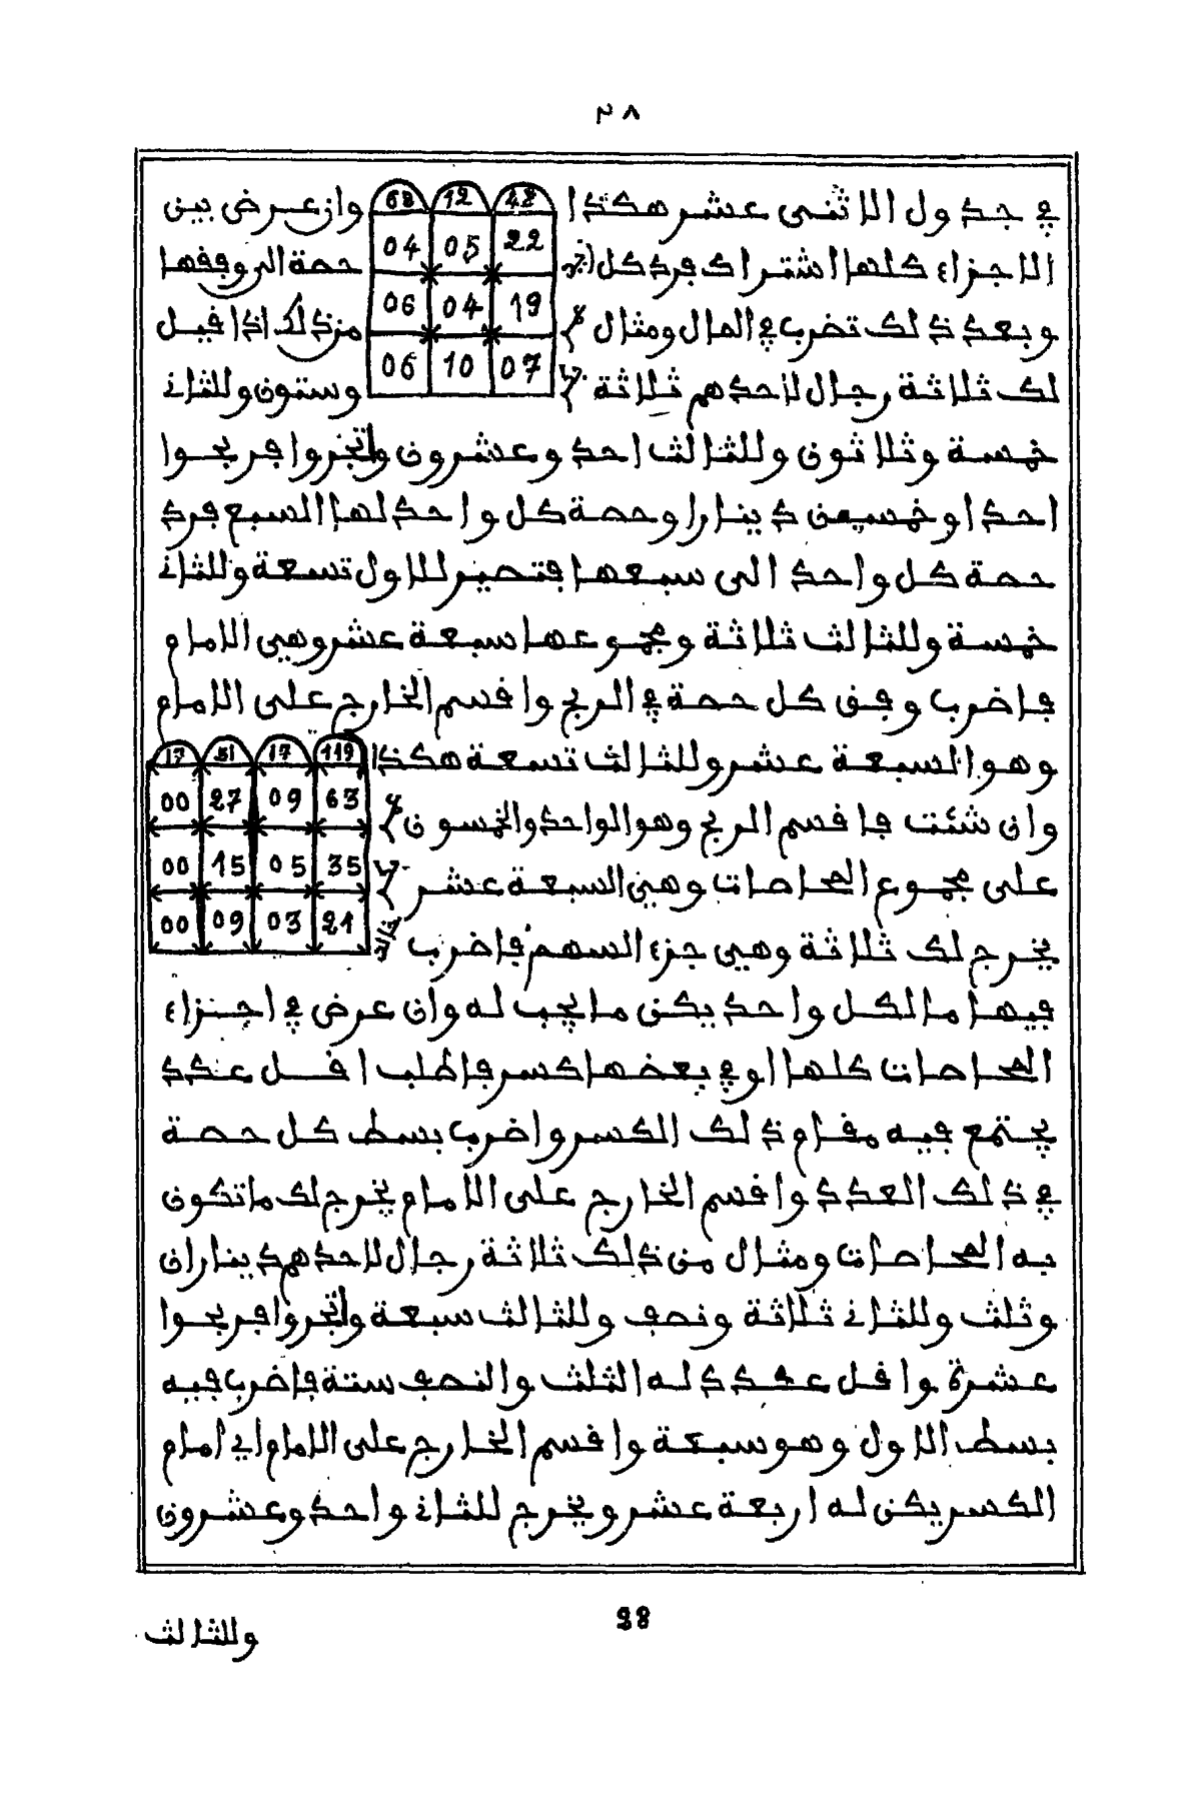 ٣٨
في جدول الاثنى عشر هكذا 48 12 68 وان عرض بين
الاجزاء كلها اشتراك فرد كل 22 05 04 حصة الى وفقها
وبعد ذلك تضرب في المال ومثال 19 04 06 من ذلك اذا قيل
لك ثلاثة رجال لاحدهم ثلاثة 07 10 06 وستون وللثاني
خمسة وثلاثون وللثالث احد وعشرون واتجروا فربحوا
احدا وخمسين دينارا وحصة كل واحد لها السبع فرد
حصة كل واحد الى سبعها فتصير للاول تسعة وللثاني
خمسة وللثالث ثلاثة ومجموعها سبعة عشر وهي الامام
فاضرب وفق كل حصة في الربح واقسم الخارج على الامام
وهو السبعة عشر وللثالث تسعة هكذا 119 17 51 17
وان شئت فاقسم الربح وهو الواحد والخمسون 63 09 27 00
على مجموع المحاصات وهي السبعة عشر 35 05 15 00
يخرج لك ثلاثة وهي جزء السهم فاضرب 21 03 09 00
فيها ما لكل واحد يكن ما يجب له وان عرض في اجزاء
المحاصات كلها او في بعضها كسر فاطلب اقل عدد
يجتمع فيه مقام ذلك الكسر واضرب بسط كل حصة
في ذلك العدد واقسم الخارج على الامام يخرج لك ما تكون
به المحاصات ومثال من ذلك ثلاثة رجال لاحدهم ديناران
وثلث وللثاني ثلاثة ونصف وللثالث سبعة واتجروا فربحوا
عشرة واقل عدد له الثلث والنصف ستة فاضرب فيه
بسط الاول وهو سبعة واقسم الخارج على الامام اي امام
الكسر يكن له اربعة عشر ويخرج للثاني واحد وعشرون
38
وللثالث